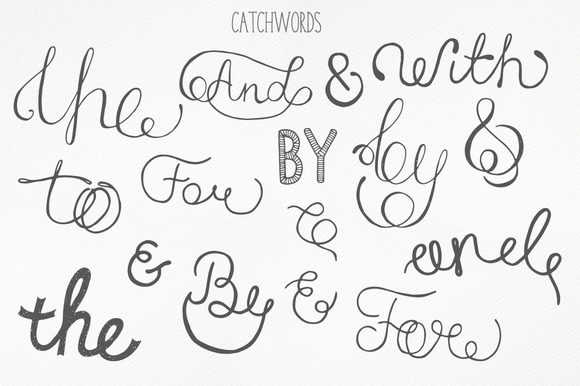 CATCHWORDS
the And & With
BY by &
to For
&
and
the & By & For